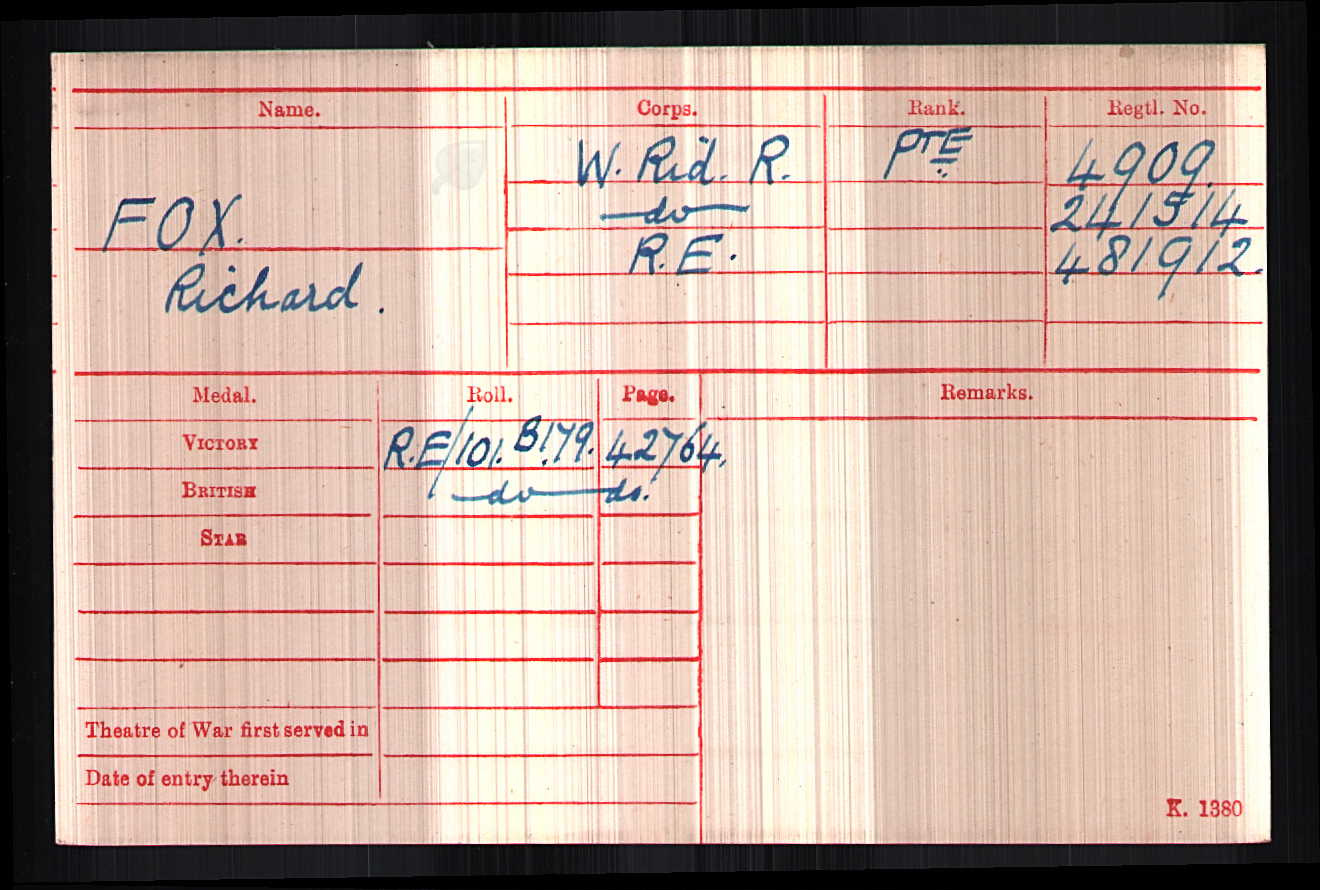 Name. Corps. Rank. Regtl. No.
W. Rid. R. Pte 4909.
FOX. do 241514
R.E. 481912.
Richard.
Medal. Roll. Page. Remarks.
VICTORY R.E/101. B179. 42764.
BRITISH do do.
STAR
Theatre of War first served in
Date of entry therein
K. 1380